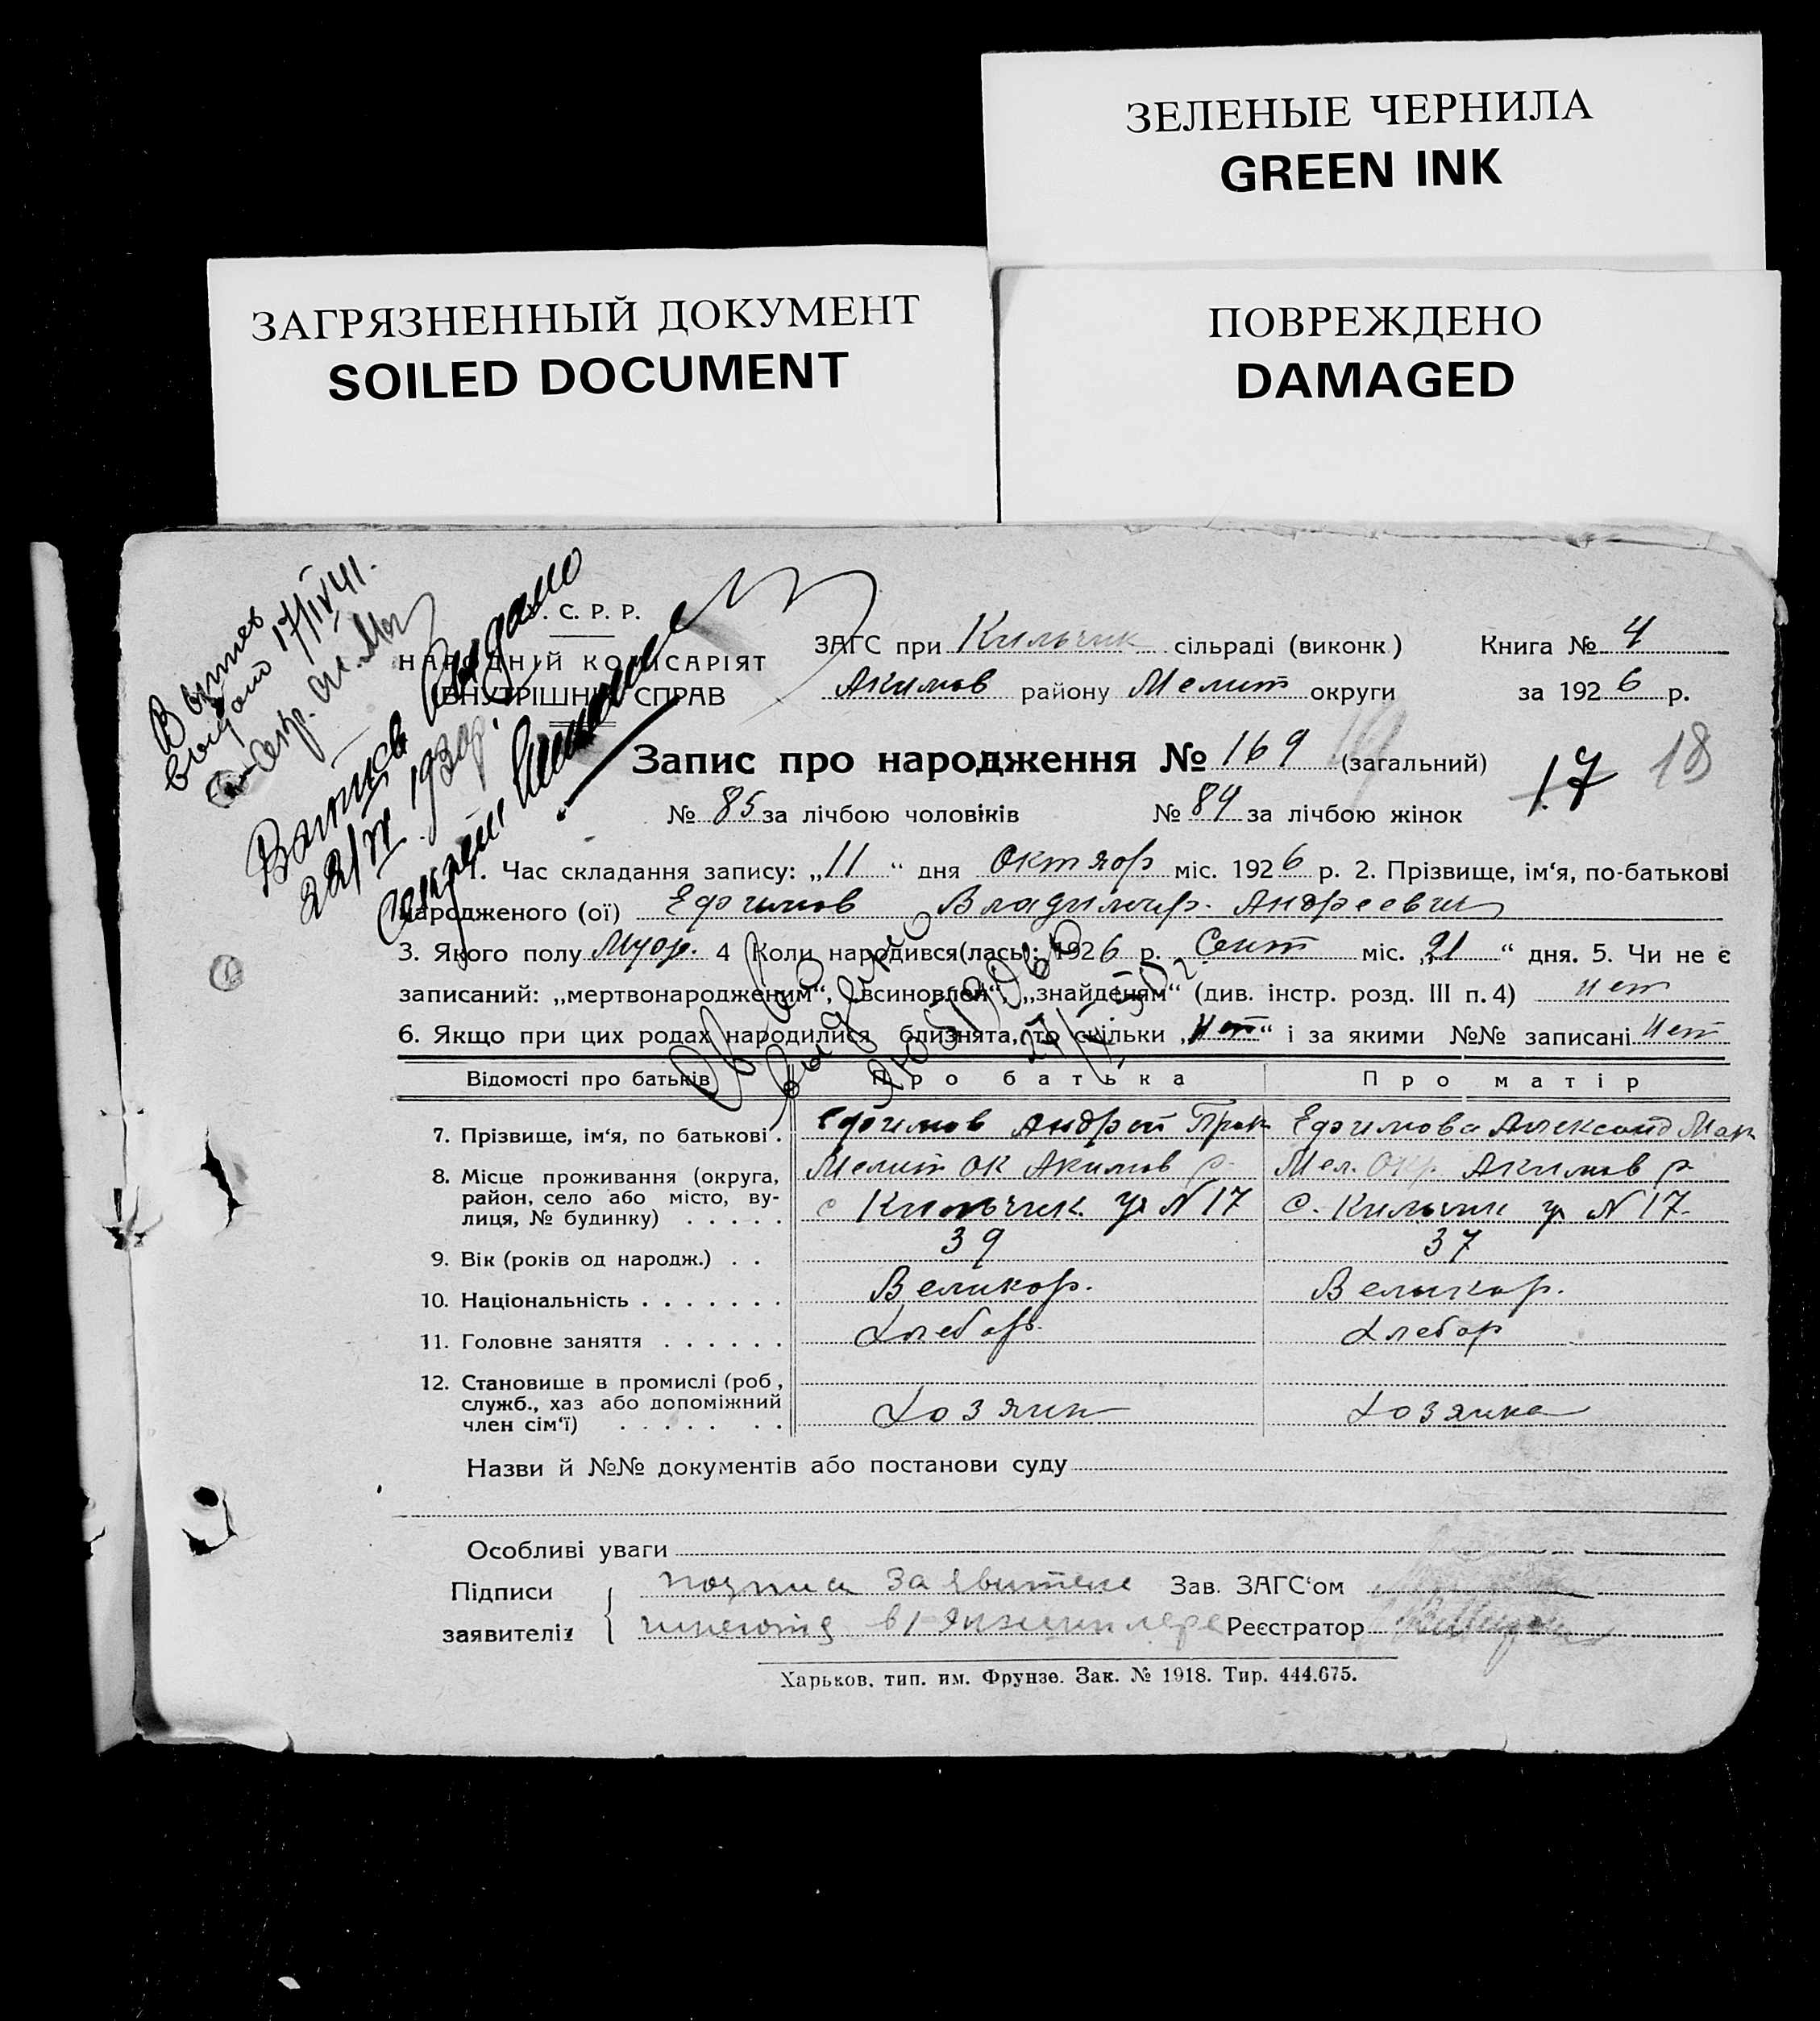 ЗЕЛЕНЫЕ ЧЕРНИЛА
GREEN INK
ЗАГРЯЗНЕННЫЙ ДОКУМЕНТ
SOILED DOCUMENT
ПОВРЕЖДЕНО
DAMAGED
Выпись
выдано 17/IV 41.
Выпись выдано
22/IV 193
С. Р. Р.
НАРОДНІЙ КОМІСАРІЯТ
ВНУТРІШНІХ СПРАВ
ЗАГС при Кильчик сільраді (виконк) Книга № 4
Акимов району Мелит округи за 1926 р.
Запис про народження № 169 (загальний) 17 18
№ 85 за лічбою чоловіків № 84 за лічбою жінок
1. Час складання запису: „11“ дня Октябр міс. 1926 р. 2. Прізвище, ім‘я, по-батькові
народженого (ої) Ефимов Владимир. Андреевич
3. Якого полу Муж. 4 Коли народився(лась): 1926 р. Сент міс. „21“ дня. 5. Чи не є
записаний: „мертвонародженим“, „всиновлен“, „знайденям“ (див. інстр. розд. III п. 4) нет
6. Якщо при цих родах народилися близнята, то скільки „нет“ і за якими №№ записані нет
Св во
выдано
Відомості про батьків Про батька Про матір
7. Прізвище, ім‘я, по батькові. Ефимов Андрей Прок Ефимова Александ Мак
8. Місце проживання (округа, Мелит ок Акимов р. Мел. Окр. Акимов р
район, село або місто, ву-
лиця, № будинку) с Кильчик ул N 17 С. Кильчик ул N 17.
9. Вік (років од народж.) 39 37
10. Національність Великор. Великор.
11. Головне заняття Хлебор. Хлебор
12. Становище в промислі (роб,
служб., хаз або допоміжний
член сім‘ї) Хозяин Хозяика
Назви й №№ документів або постанови суду
Особливі уваги
Підписи подписи заявителе Зав. ЗАГС‘ом
заявителів имеютя в 1 экземпляре Реєстратор
Харьков, тип. им. Фрунзе. Зак. № 1918. Тир. 444.675.